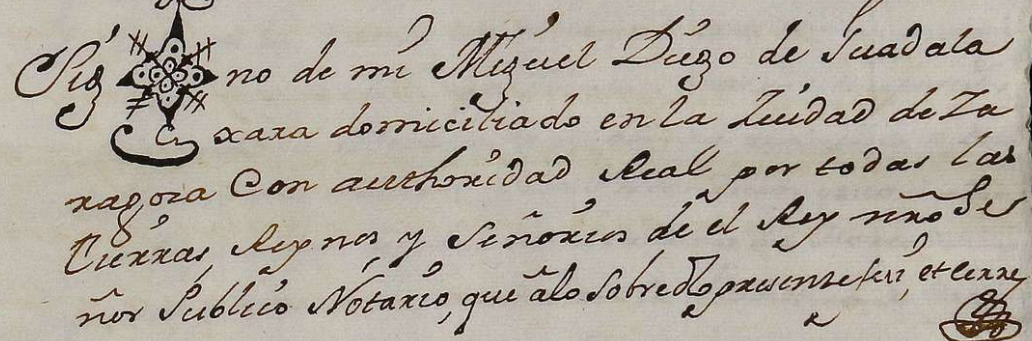 Sig no de mi Miguel Diego de Guadala
xara domiciliado en la Ziudad de Za
ragoza Con authoridad Real por todas las
tierras Reynos y Señorios de el Rey nr̃o Se
ñor Publico Notario, que a lo sobredho presente fui, et cerre